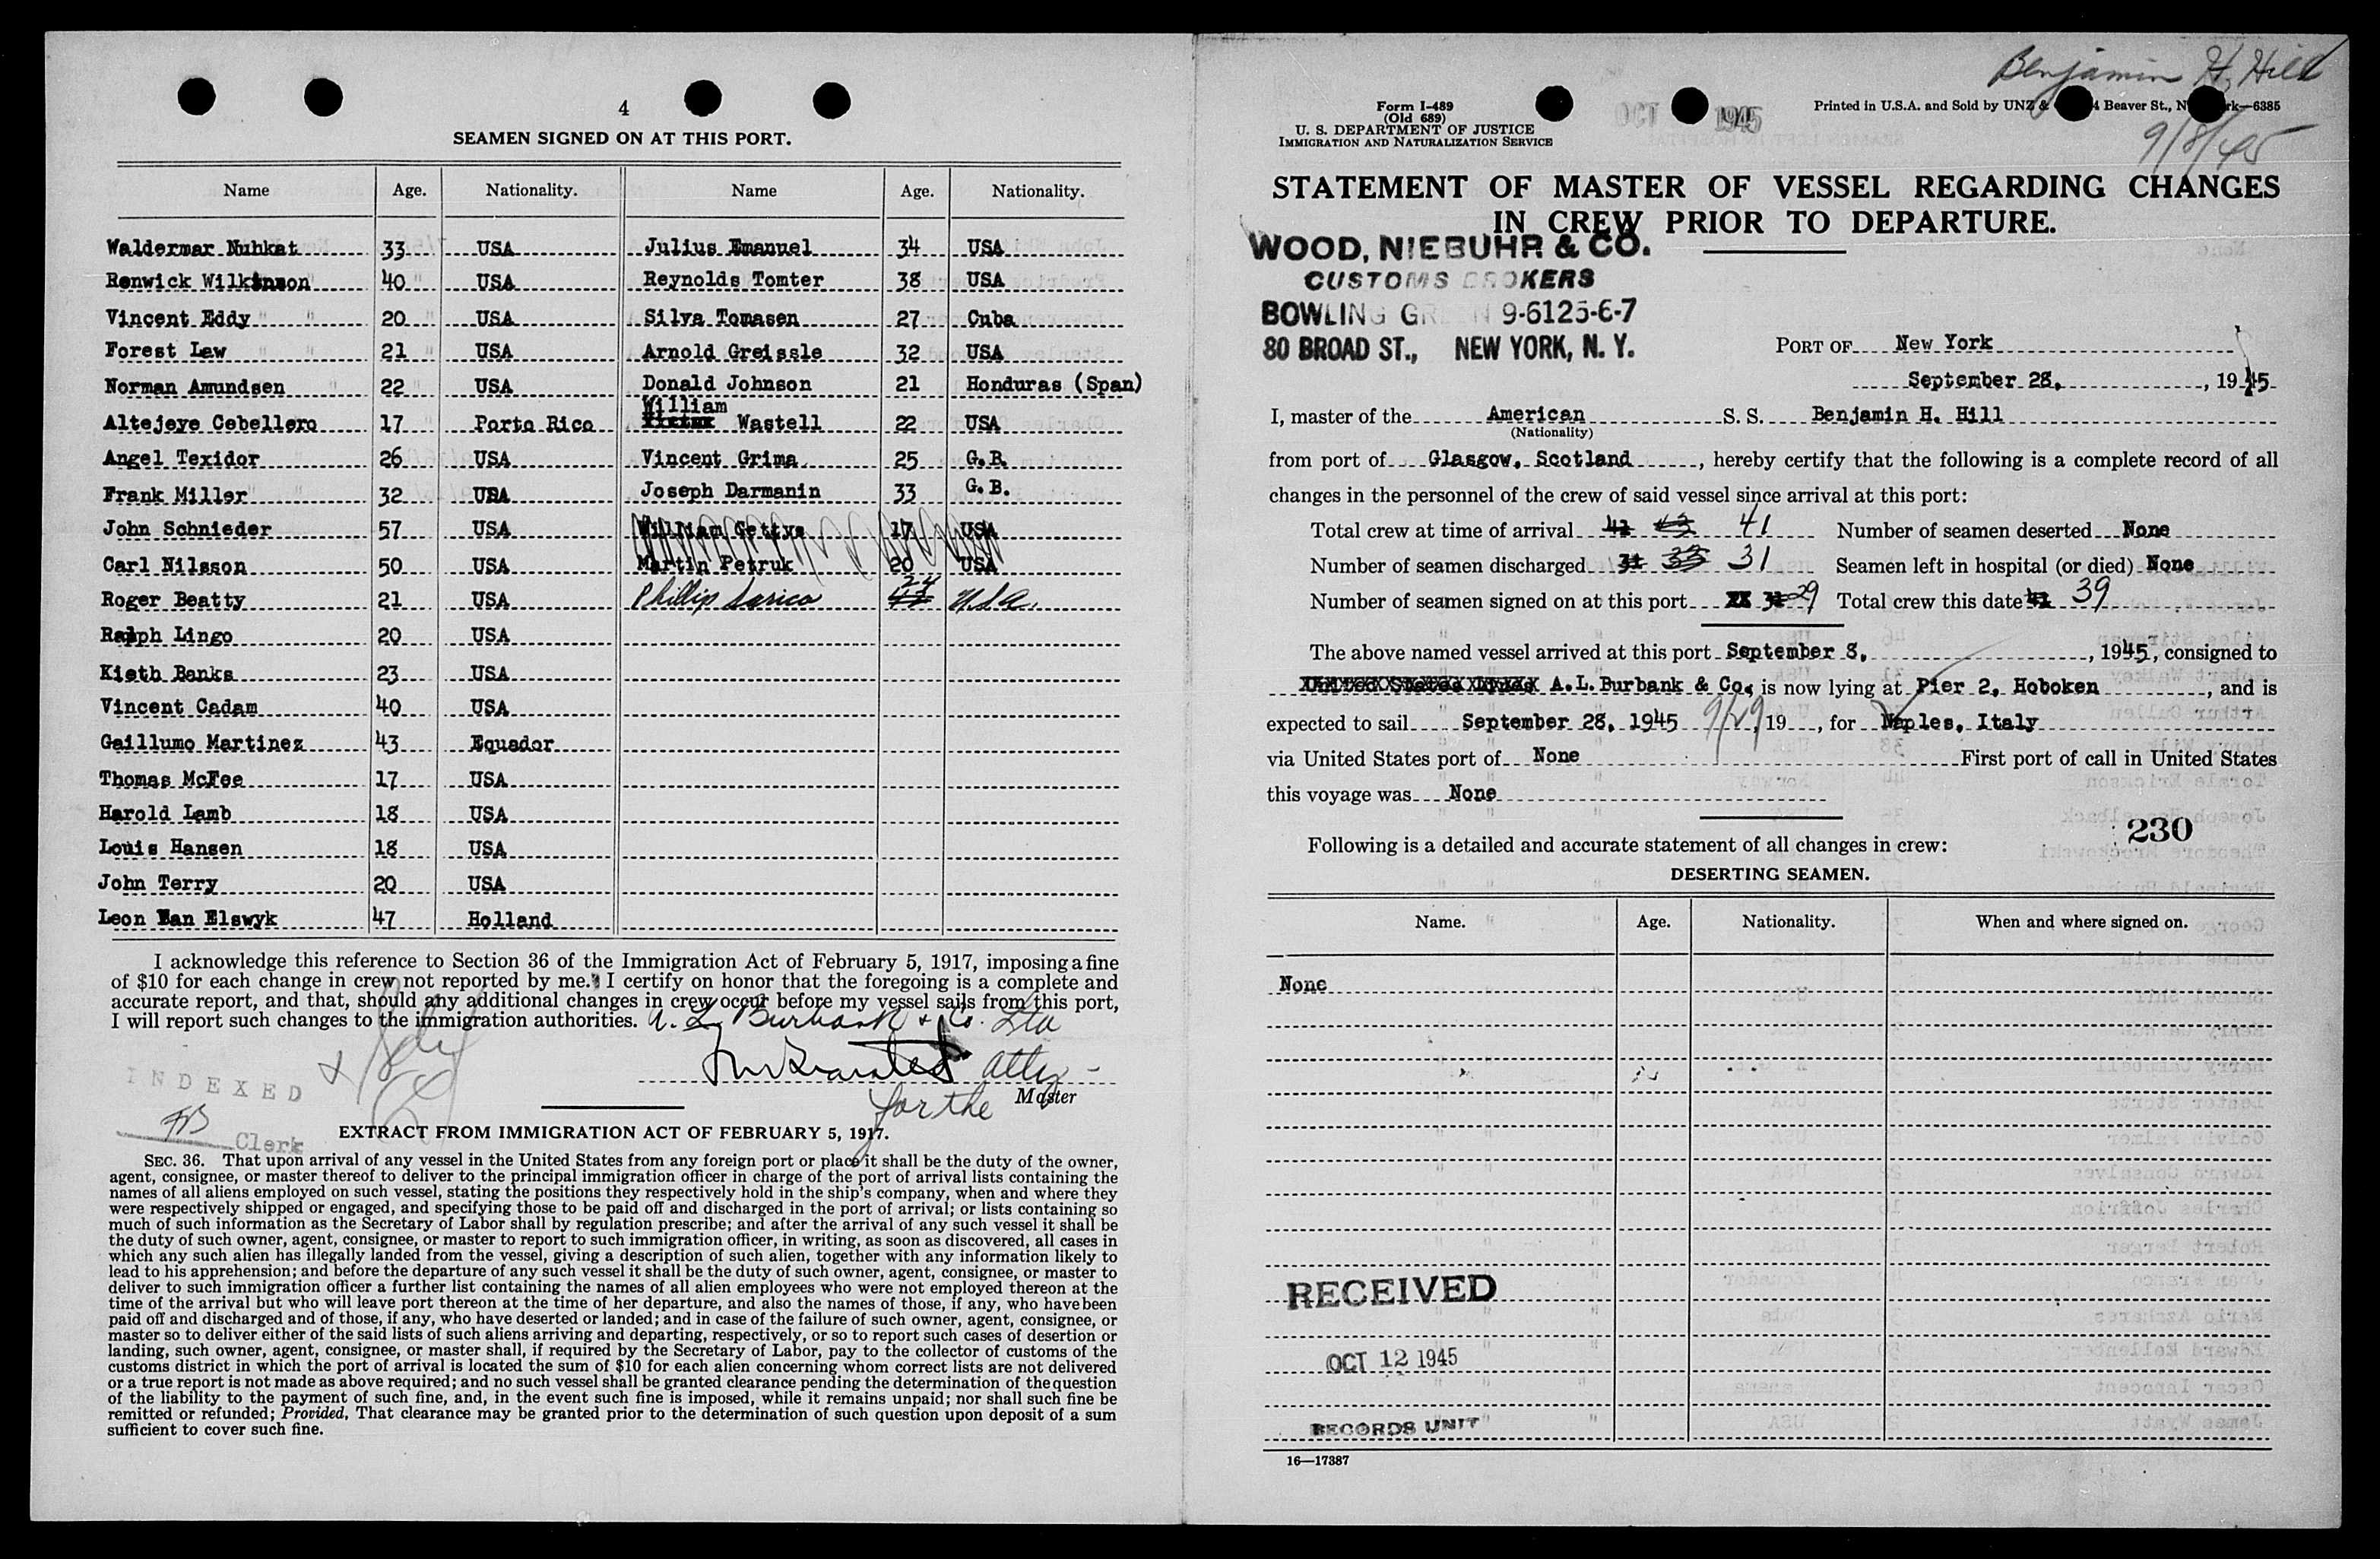 4
SEAMEN SIGNED ON AT THIS PORT.
Name Age. Nationality. Name Age. Nationality.
Waldermar Nuhkat 33 USA Julius Emanuel 34 USA
Renwick Wilkinson 40 USA Reynolds Tomter 38 USA
Vincent Eddy 20 USA Silva Tomasen 27 Cuba
Forest Law 21 USA Arnold Greissle 32 USA
Norman Amundsen 22 USA Donald Johnson 21 Honduras (Span)
William
Altejeye Cebellero 17 Porto Rico Wastell 22 USA
Angel Texidor 26 USA Vincent Grima 25 G.B.
Frank Miller 32 USA Joseph Darmanin 33 G.B.
John Schnieder 57 USA William Gettys 17 USA
Carl Nilsson 50 USA Martin Petruk 20 USA
Roger Beatty 21 USA Phillip Sarica 24 U.S.A.
Ralph Lingo 20 USA
Kieth Banks 23 USA
Vincent Cadam 40 USA
Gaillumo Martinez 43 Equador
Thomas McFee 17 USA
Harold Lamb 18 USA
Louis Hansen 18 USA
John Terry 20 USA
Leon Van Elswyk 47 Holland
I acknowledge this reference to Section 36 of the Immigration Act of February 5, 1917, imposing a fine
of $10 for each change in crew not reported by me. I certify on honor that the foregoing is a complete and
accurate report, and that, should any additional changes in crew occur before my vessel sails from this port,
I will report such changes to the immigration authorities. A. L. Burbank & Co. Ltd
Atty
for the Master
INDEXED
Clerk
EXTRACT FROM IMMIGRATION ACT OF FEBRUARY 5, 1917.
SEC. 36. That upon arrival of any vessel in the United States from any foreign port or place it shall be the duty of the owner,
agent, consignee, or master thereof to deliver to the principal immigration officer in charge of the port of arrival lists containing the
names of all aliens employed on such vessel, stating the positions they respectively hold in the ship's company, when and where they
were respectively shipped or engaged, and specifying those to be paid off and discharged in the port of arrival; or lists containing so
much of such information as the Secretary of Labor shall by regulation prescribe; and after the arrival of any such vessel it shall be
the duty of such owner, agent, consignee, or master to report to such immigration officer, in writing, as soon as discovered, all cases in
which any such alien has illegally landed from the vessel, giving a description of such alien, together with any information likely to
lead to his apprehension; and before the departure of any such vessel it shall be the duty of such owner, agent, consignee, or master to
deliver to such immigration officer a further list containing the names of all alien employees who were not employed thereon at the
time of the arrival but who will leave port thereon at the time of her departure, and also the names of those, if any, who have been
paid off and discharged and of those, if any, who have deserted or landed; and in case of the failure of such owner, agent, consignee, or
master so to deliver either of the said lists of such aliens arriving and departing, respectively, or so to report such cases of desertion or
landing, such owner, agent, consignee, or master shall, if required by the Secretary of Labor, pay to the collector of customs of the
customs district in which the port of arrival is located the sum of $10 for each alien concerning whom correct lists are not delivered
or a true report is not made as above required; and no such vessel shall be granted clearance pending the determination of the question
of the liability to the payment of such fine, and, in the event such fine is imposed, while it remains unpaid; nor shall such fine be
remitted or refunded; Provided, That clearance may be granted prior to the determination of such question upon deposit of a sum
sufficient to cover such fine.
Benjamin H. Hill
9/8/45
Form I-489
(Old 689)
U. S. DEPARTMENT OF JUSTICE
IMMIGRATION AND NATURALIZATION SERVICE
OCT 1945
Printed in U.S.A. and Sold by UNZ & Beaver St., N rk—6385
STATEMENT OF MASTER OF VESSEL REGARDING CHANGES
IN CREW PRIOR TO DEPARTURE.
WOOD, NIEBUHR & CO.
CUSTOMS BROKERS
BOWLING GREEN 9-6125-6-7
80 BROAD ST., NEW YORK, N. Y.
PORT OF New York
September 28, 1945
I, master of the American S. S. Benjamin H. Hill
(Nationality)
from port of Glasgow, Scotland, hereby certify that the following is a complete record of all
changes in the personnel of the crew of said vessel since arrival at this port:
Total crew at time of arrival 41 43 41 Number of seamen deserted None
Number of seamen discharged 31 33 31 Seamen left in hospital (or died) None
Number of seamen signed on at this port 31 29 Total crew this date 41 39
The above named vessel arrived at this port September 8, 1945, consigned to
United States Lines A.L. Burbank & Co. is now lying at Pier 2, Hoboken, and is
expected to sail September 28, 1945 9/29, 19 , for Naples, Italy
via United States port of None First port of call in United States
this voyage was None
230
Following is a detailed and accurate statement of all changes in crew:
DESERTING SEAMEN.
Name. Age. Nationality. When and where signed on.
None
RECEIVED
OCT 12 1945
RECORDS UNIT
16—17387